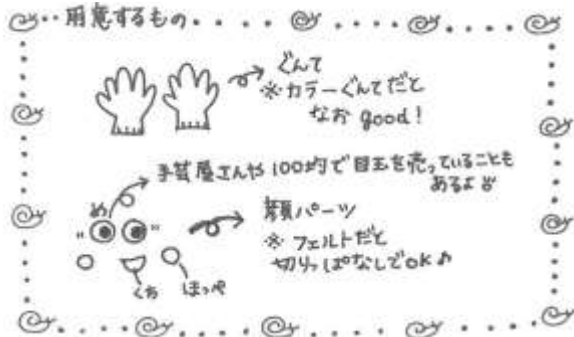 用意するもの
ぐんて
※カラーぐんてだと
なお good!
手芸屋さんや 100均で目玉を売っていることも
あるよ
め
顔パーツ
※ フェルトだと
切りっぱなしでOK♪
くち
ほっぺ